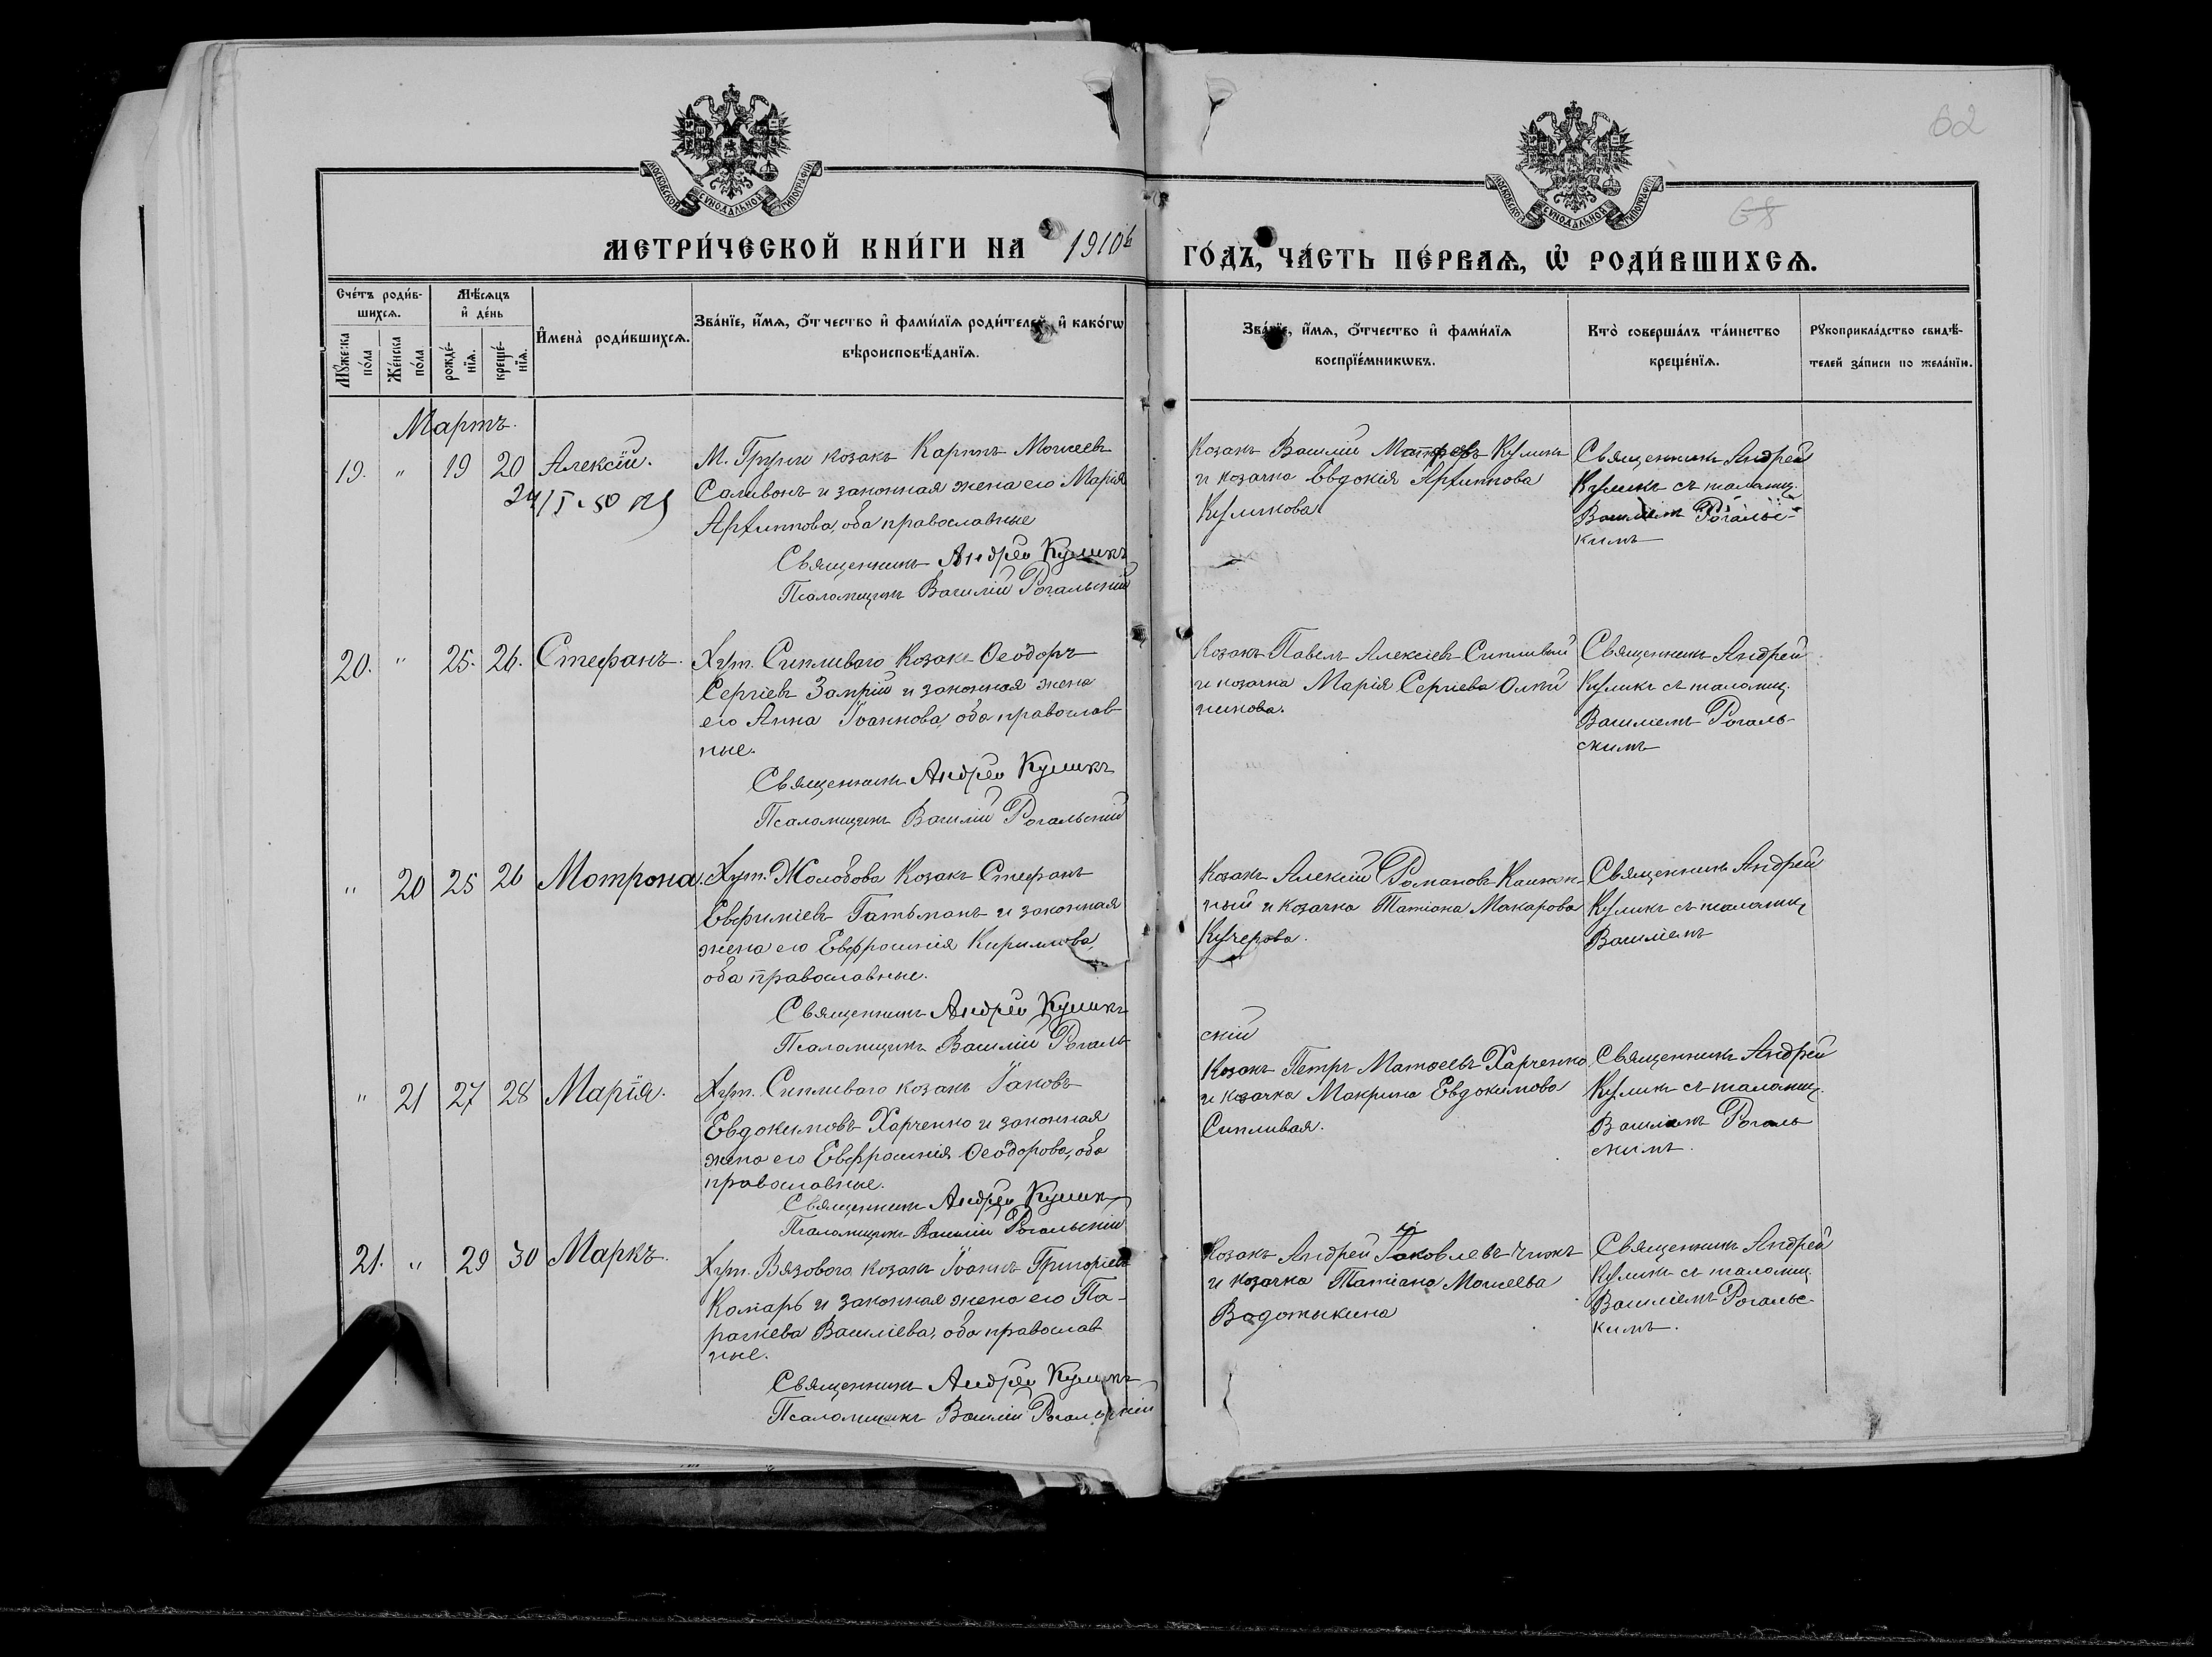 62
68
МОСКОВСКОЙ СУНОДАЛЬНОЙ ТИПОГРАФІИ
МОСКОВСКОЙ СУНОДАЛЬНОЙ ТИПОГРАФІИ
МЕТРИ́ЧЕСКОЙ КНИ́ГИ НА 1910й ГО́ДЪ, ЧА́СТЬ ПЕ́РВАѦ, Ѡ҆ РОДИ́ВШИХСѦ.
Сче́тъ роди́в-
шихсѧ.
Мꙋ́жеска
по́ла
Же́нска
по́ла
Мѣ́сѧцъ
и҆ де́нь
рожде́-
нїѧ.
креще́-
нїѧ.
И҆мена̀ роди́вшихсѧ.
Зва́нїе, и҆́мѧ, ѻ҆́тчество и҆ фами́лїѧ роди́телей, и҆ како́гѡ
вѣроисповѣ́данїѧ.
Зва́нїе, и҆́мѧ, ѻ҆́тчество и҆ фами́лїѧ
воспрїе́мникѡвъ.
Кто̀ соверша́лъ та́инство
креще́нїѧ.
Рꙋкоприкла́дство свидѣ́-
телей за́писи по жела́нїю.
Мартъ.
19. " 19 20 Алексій.
24/I-50
М. Груни козакъ Карпъ Моисеевъ
Саливонъ и законная жена его Марія
Архиппова, оба православные
Священникъ Андрей Куликъ
Псаломщикъ Василій Рогальскій
Козакъ Василій Матфеевъ Куликъ
и козачка Евдокія Архиппова
Куликова
Священникъ Андрей
Куликъ съ псаломщ.
Василіемъ Рогальс-
кимъ
20. " 25. 26. Стефанъ.
Хут. Сипливаго козакъ Ѳеодоръ
Сергіевъ Замрій и законная жена
его Анна Іоаннова, оба православ
ные.
Священникъ Андрей Куликъ
Псаломщикъ Василій Рогальскій
Козакъ Павелъ Алексіевъ Сипливый
и козачка Марія Сергіева Олій
никова.
Священникъ Андрей
Куликъ съ псаломщ.
Василіемъ Рогаль-
скимъ
" 20 25 26 Мотрона.
Хут. Жолобова козакъ Стефанъ
Евфиміевъ Гатьманъ и законная
жена его Евфросинія Кириллова,
оба православные.
Священникъ Андрей Куликъ
Псаломщикъ Василій Рогаль
скій
Козакъ Алексій Романовъ
ный и козачка Татіана Макарова
Кучерова.
Священникъ Андрей
Куликъ съ псаломщ
Василіемъ
" 21 27 28 Марія.
Хут. Сипливаго козакъ Іаковъ
Евдокимовъ Харченко и законная
жена его Евфросинія Ѳеодорова, оба
православные.
Священникъ Андрей Куликъ
Псаломщикъ Василій Рогальскій
Козакъ Петръ Матѳеевъ Харченко
и козачка Макрина Евдокимова
Сипливая.
Священникъ Андрей
Куликъ съ псаломщ.
Василіемъ Рогаль
скимъ.
21. " 29 30 Маркъ.
Хут. Вязового козакъ Іоаннъ Григоріевъ
Комарь и законная жена его Па-
раскева Василіева, оба православ
ные.
Священникъ Андрей Куликъ
Псаломщикъ Василій Рогальскій
Козакъ Андрей Іаковлевъ Чижъ
и козачка Татіана Моисеева
Водотыкина
Священникъ Андрей
Куликъ съ псаломщ
Василіемъ Рогальс-
кимъ.